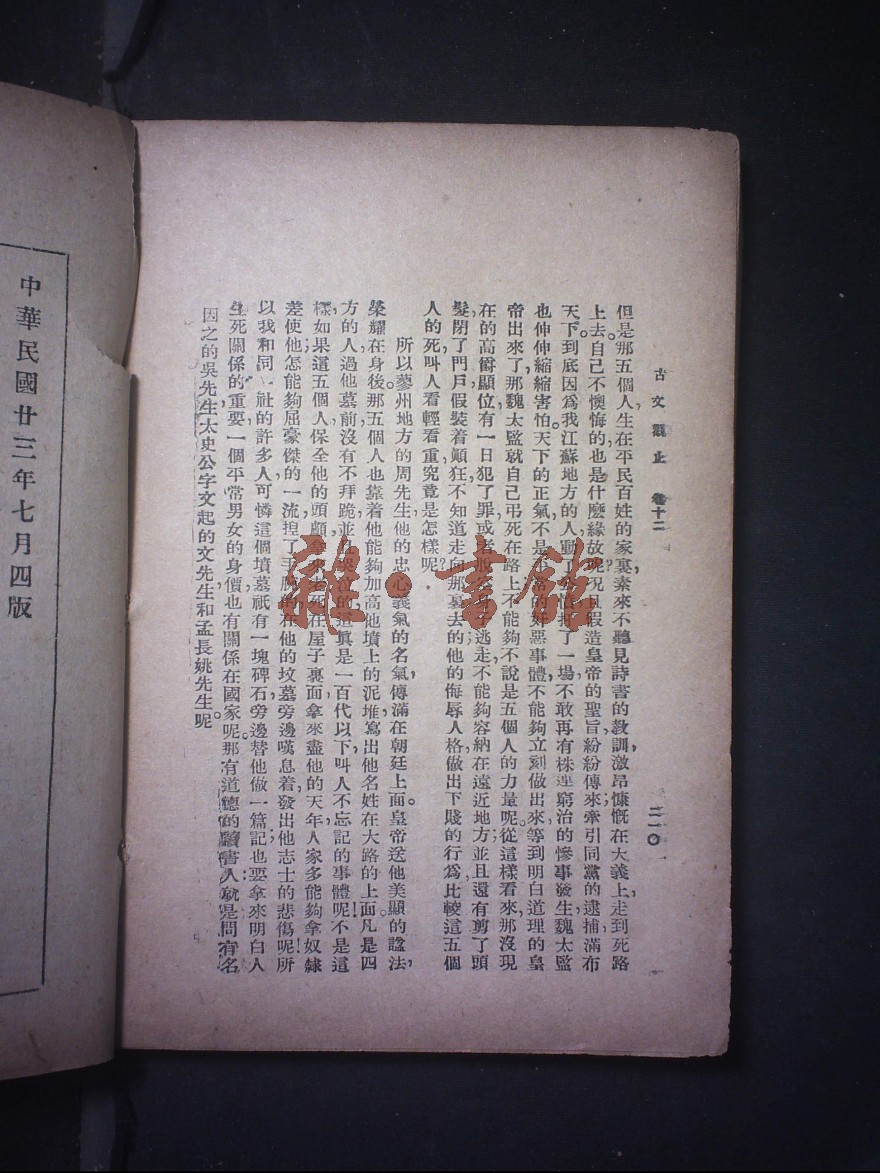 古文觀止 卷十二
二一〇
但是那五個人生在平民百姓的家裏素來不聽見詩書的敎訓激昂慷慨在大義上走到死路
上去自己不懊悔的也是什麼緣故呢況且假造皇帝的聖旨紛紛傳來牽引同黨的逮捕滿布
天下到底因爲我江蘇地方的人動了打了一場不敢再有株連窮治的慘事發生魏太監
也伸伸縮縮害怕天下的正氣不是常的惡事體不能夠立刻做出來等到明白道理的皇
帝出來了那魏太監就自己弔死在路上不能夠不說是五個人的力量呢從這樣看來那沒現
在的高爵顯位有一日犯了罪或者逃走不能夠容納在遠近地方並且還有剪了頭
髮閉了門戶假裝着顚狂不知道走向那裏去的他的侮辱人格做出下賤的行爲比較這五個
人的死叫人看輕看重究竟是怎樣呢
所以蓼州地方的周先生他的忠心義氣的名氣傳滿在朝廷上面皇帝送他美顯的諡法
榮耀在身後那五個人也靠着他能夠加高他墳上的泥堆寫出他名姓在大路的上面凡是四
方的人過他墓前沒有不拜跪並且哭泣的這眞是一百代以下叫人不忘記的事體呢不是這
樣如果這五個人保全他的頭顱拿來老死在屋子裏面拿來盡他的天年人家多能夠拿奴隸
差使他怎能夠屈豪傑的一流揑了手腕的在他的坟墓旁邊嘆息着發出他志士的悲傷呢所
以我和同一社的許多人可憐這個墳墓祇有一塊碑石旁邊替他做一篇記也要拿來明白人
生死關係的重要一個平常男女的身價也有關係在國家呢那有道德的讀書人就是問有名
因之的吳先生太史公字文起的文先生和孟長姚先生呢
中華民國廿三年七月四版
雜·書館